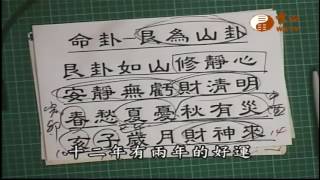 命卦-艮為山卦
艮卦如山修靜心
安靜無虧財清明
春愁夏憂秋有災
亥子歲月財神來
十二年有兩年的好運